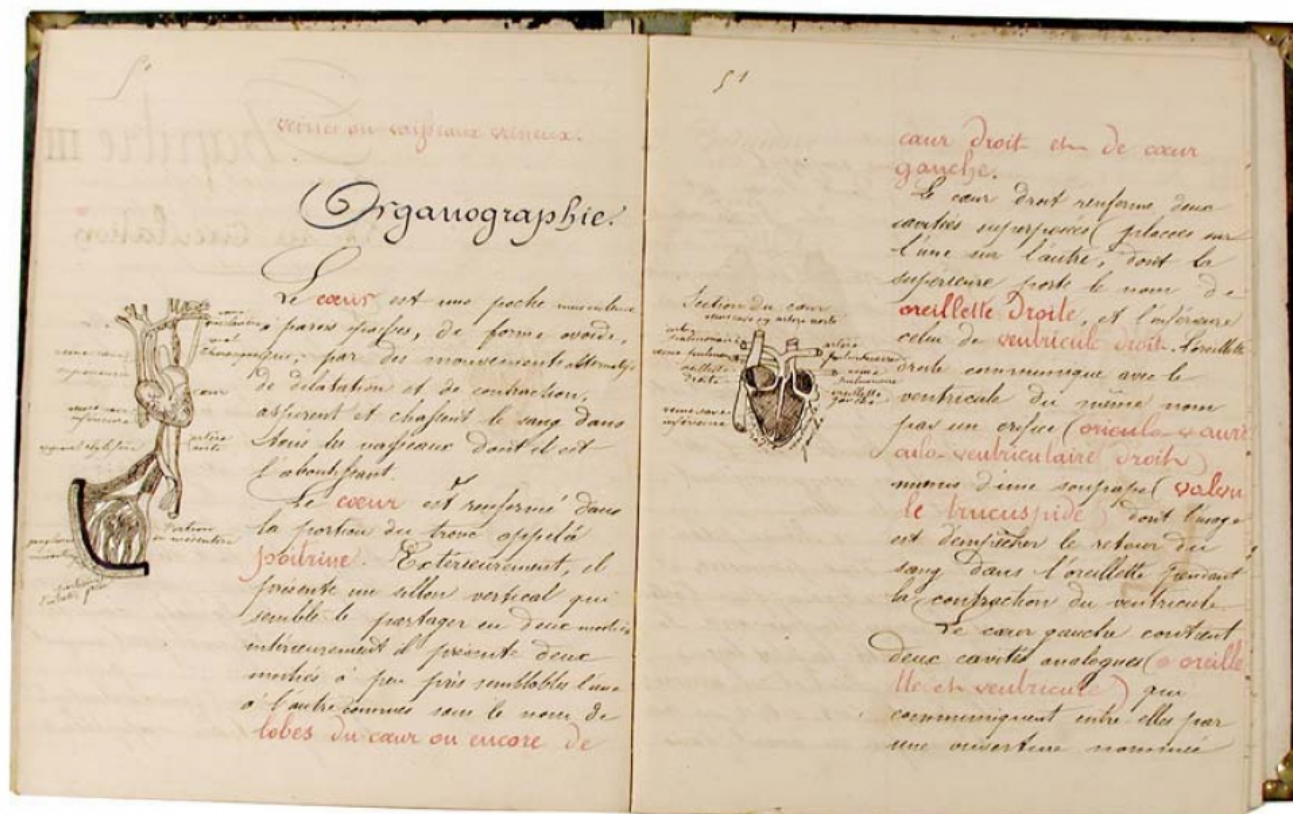 51
veines ou vaisseaux veineux.
Organographie.
Le cœur est une poche musculeuse
à parois épaisses, de forme ovoïde,
que, par des mouvements alternatifs
de dilatation et de contraction,
aspirent et chassent le sang dans
tous les vaisseaux dont il est
l'aboutissant.
Le cœur est renfermé dans
la portion du tronc appelé
poitrine. Extérieurement, il
présente un sillon vertical qui
semble le partager en deux moitiés
intérieurement il présente deux
moitiés à peu près semblables l'une
à l'autre connues sous le nom de
lobes du cœur ou encore de
veine cave
supérieure
cœur
veine cave
inférieure
artère
aorte
Portion
du mésentère
51
cœur droit et de cœur
gauche.
Le cœur droit renferme deux
cavités superposées (placées sur
l'une sur l'autre, dont la
supérieure porte le nom de
oreillette Droite, et l'inférieure
celui de ventricule droit. L'oreillette
droite communique avec le
ventricule du même nom
par un orifice (
-ventriculaire droit)
munis d'une soupape (valvu
le trucuspide) dont l'usage
est d'empêcher le retour du
sang dans l'oreillette pendant
la contraction du ventricule.
Le cœur gauche contient
deux cavités analogues (oreille
tte et ventricule) qui
communiquent entre elles par
une ouverture nommée
Section du cœur
artère aorte
oreillette
droite
veine cave
inférieure
artère
veine
pulmonaire
oreillette
gauche